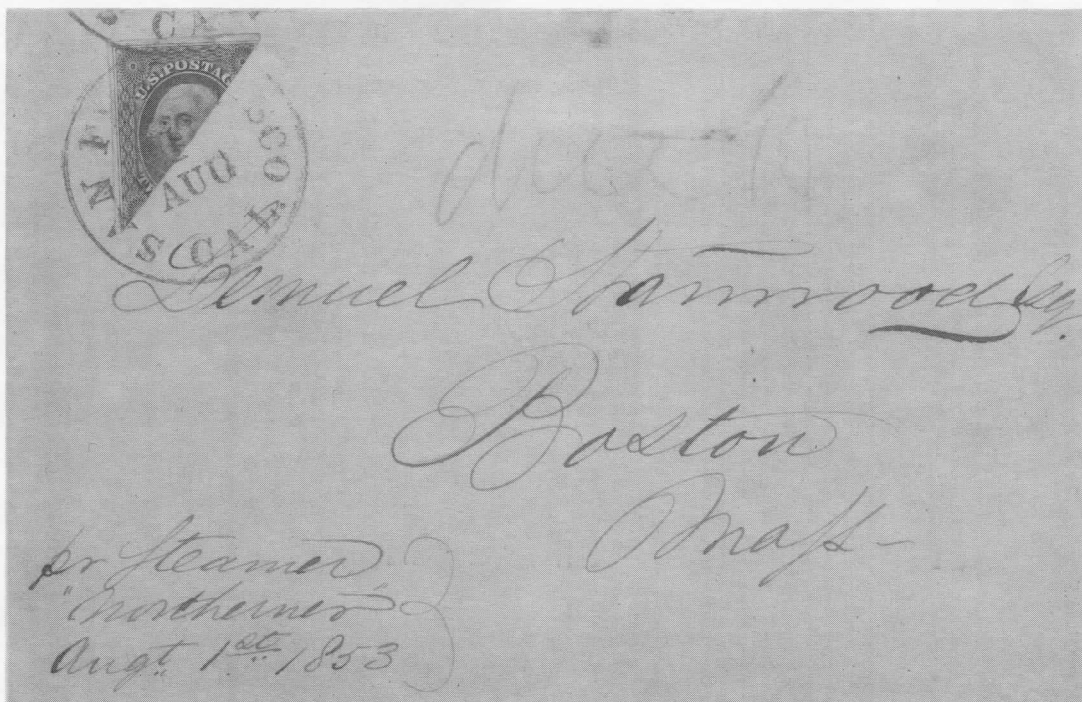 CAL
U.S. POSTAG
SAN F SCO
AUG
CAL
due
Lemuel Stanwood Esq.
Boston
Mass -
pr Steamer
"Northerner"
Augt. 1st. 1853